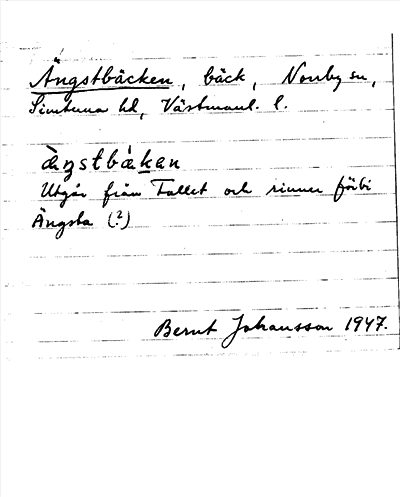 Ängstbäcken, bäck, Norrby sn,
Simtuna hd, Västmanl. l.
äŋstbäkan
Utgår från Tallet och rinner förbi
Ängsta (?)
Bernt Johansson 1947.